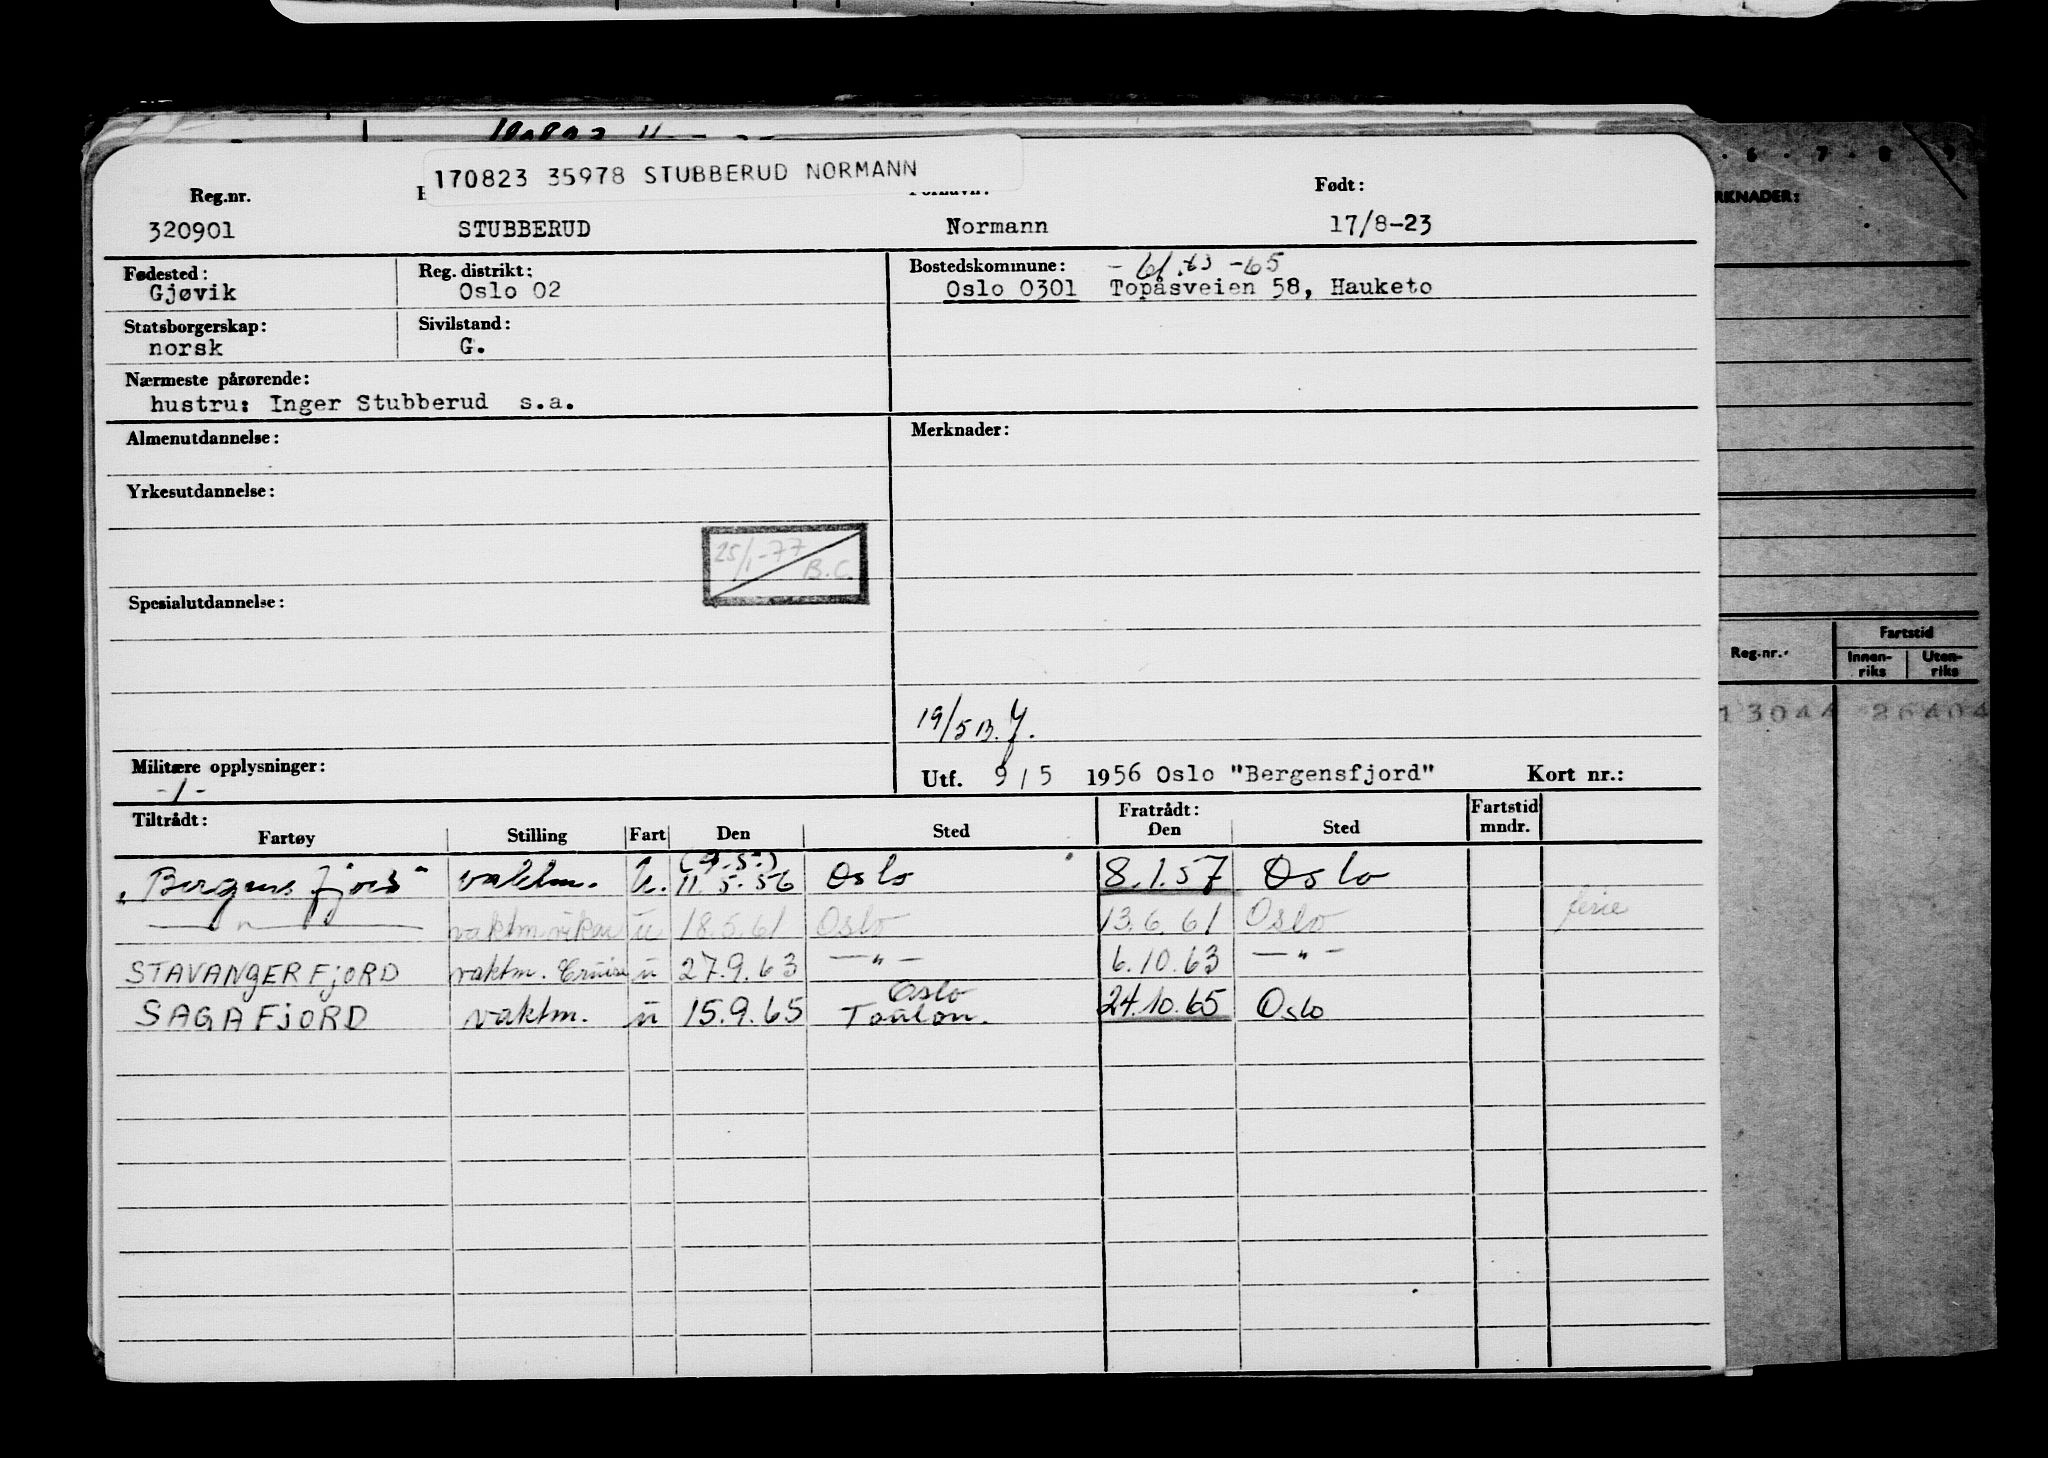 170823 35978 STUBBERUD NORMANN
Reg.nr. Født:
320901 STUBBERUD Normann 17/8-23
Fødested: Reg. distrikt: Bostedskommune: - 61.63 -65
Gjøvik Oslo 02 Oslo 0301 Topåsveien 58, Hauketo
Statsborgerskap: Sivilstand:
norsk G.
Nærmeste pårørende:
hustru: Inger Stubberud s.a.
Almenutdannelse: Merknader:
Yrkesutdannelse:
25/1-77
B.C.
Spesialutdannelse:
19/5
Militære opplysninger: Utf. 9/5 1956 Oslo "Bergensfjord" Kort nr.:
-/-
Tiltrådt: Fratrådt: Fartstid
Fartøy Stilling Fart Den Sted Den Sted mndr.
(9.5.)
"Bergensfjord" vaktm. U. 11.5.56 Oslo 8.1.57 Oslo
—"— vaktm.vikar u 18.5.61 Oslo 13.6.61 Oslo ferie
STAVANGERFJORD vaktm. Cruise u 27.9.63 —"— 6.10.63 —"—
Oslo
SAGAFJORD vaktm. u 15.9.65 Toulon. 24.10.65 Oslo
6 7 8 9
RKNADER:
Reg.nr. Fartstid
Innen-riks Uten-riks
13044 26404